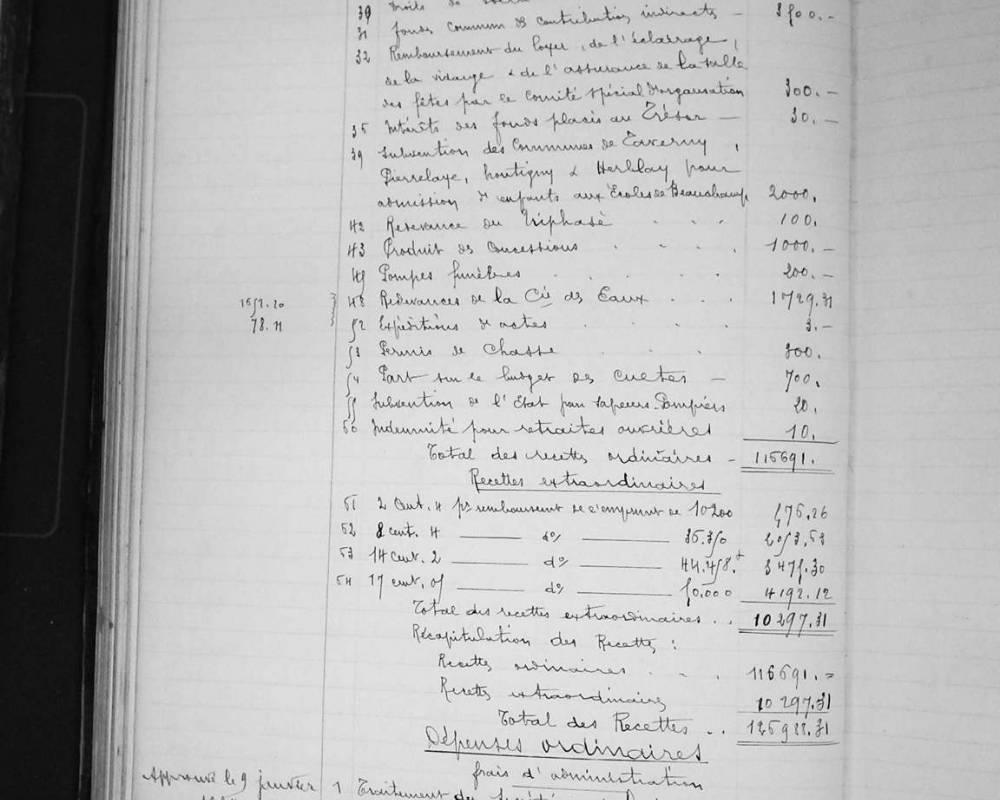 31 fonds commun des contributions indirects —
32 Remboursement du loyer, de l'éclairage,
de la vidange & de l'assurance de la salle
des fêtes par le Comité spécial d'organisation 300. —
35 Intérêts des fonds placés au Trésor — 30. —
39 Subvention des Communes de Taverny,
Pierrelaye, Montigny & Herblay pour
admission d'enfants aux Écoles de Beauchamp 2000.
42 Redevance du Triphasé 100.
43 Produit des Concessions 1000. —
Pompes funèbres 200. —
48 Redevances de la Cie des Eaux 1729.31
78.11
52 Expéditions d'actes 3. —
53 Permis de Chasse 300.
54 Part sur le budget des cuetes — 700.
55 Subvention de l'Etat pour Sapeurs-Pompiers 20.
56 Indemnité pour retraites ouvrières 10.
Total des recettes ordinaires — 115691.
Recettes extraordinaires
51 2 Cent. 4 pr remboursement de l'emprunt de 10200 576.26
52 8 cent. 4 — do —
53 14 cent. 2 — do — 3475.30
54 17 cent. 05 — do — 50.000 4192.12
Total des recettes extraordinaires .. 10297.31
Récapitulation des Recettes :
Recettes ordinaires 115691. =
Recettes extraordinaires 10297.31
Total des Recettes .. 125988.31
Dépenses ordinaires
frais d'administration
Approuvé le 9 janvier 1 Traitement du Secrétaire